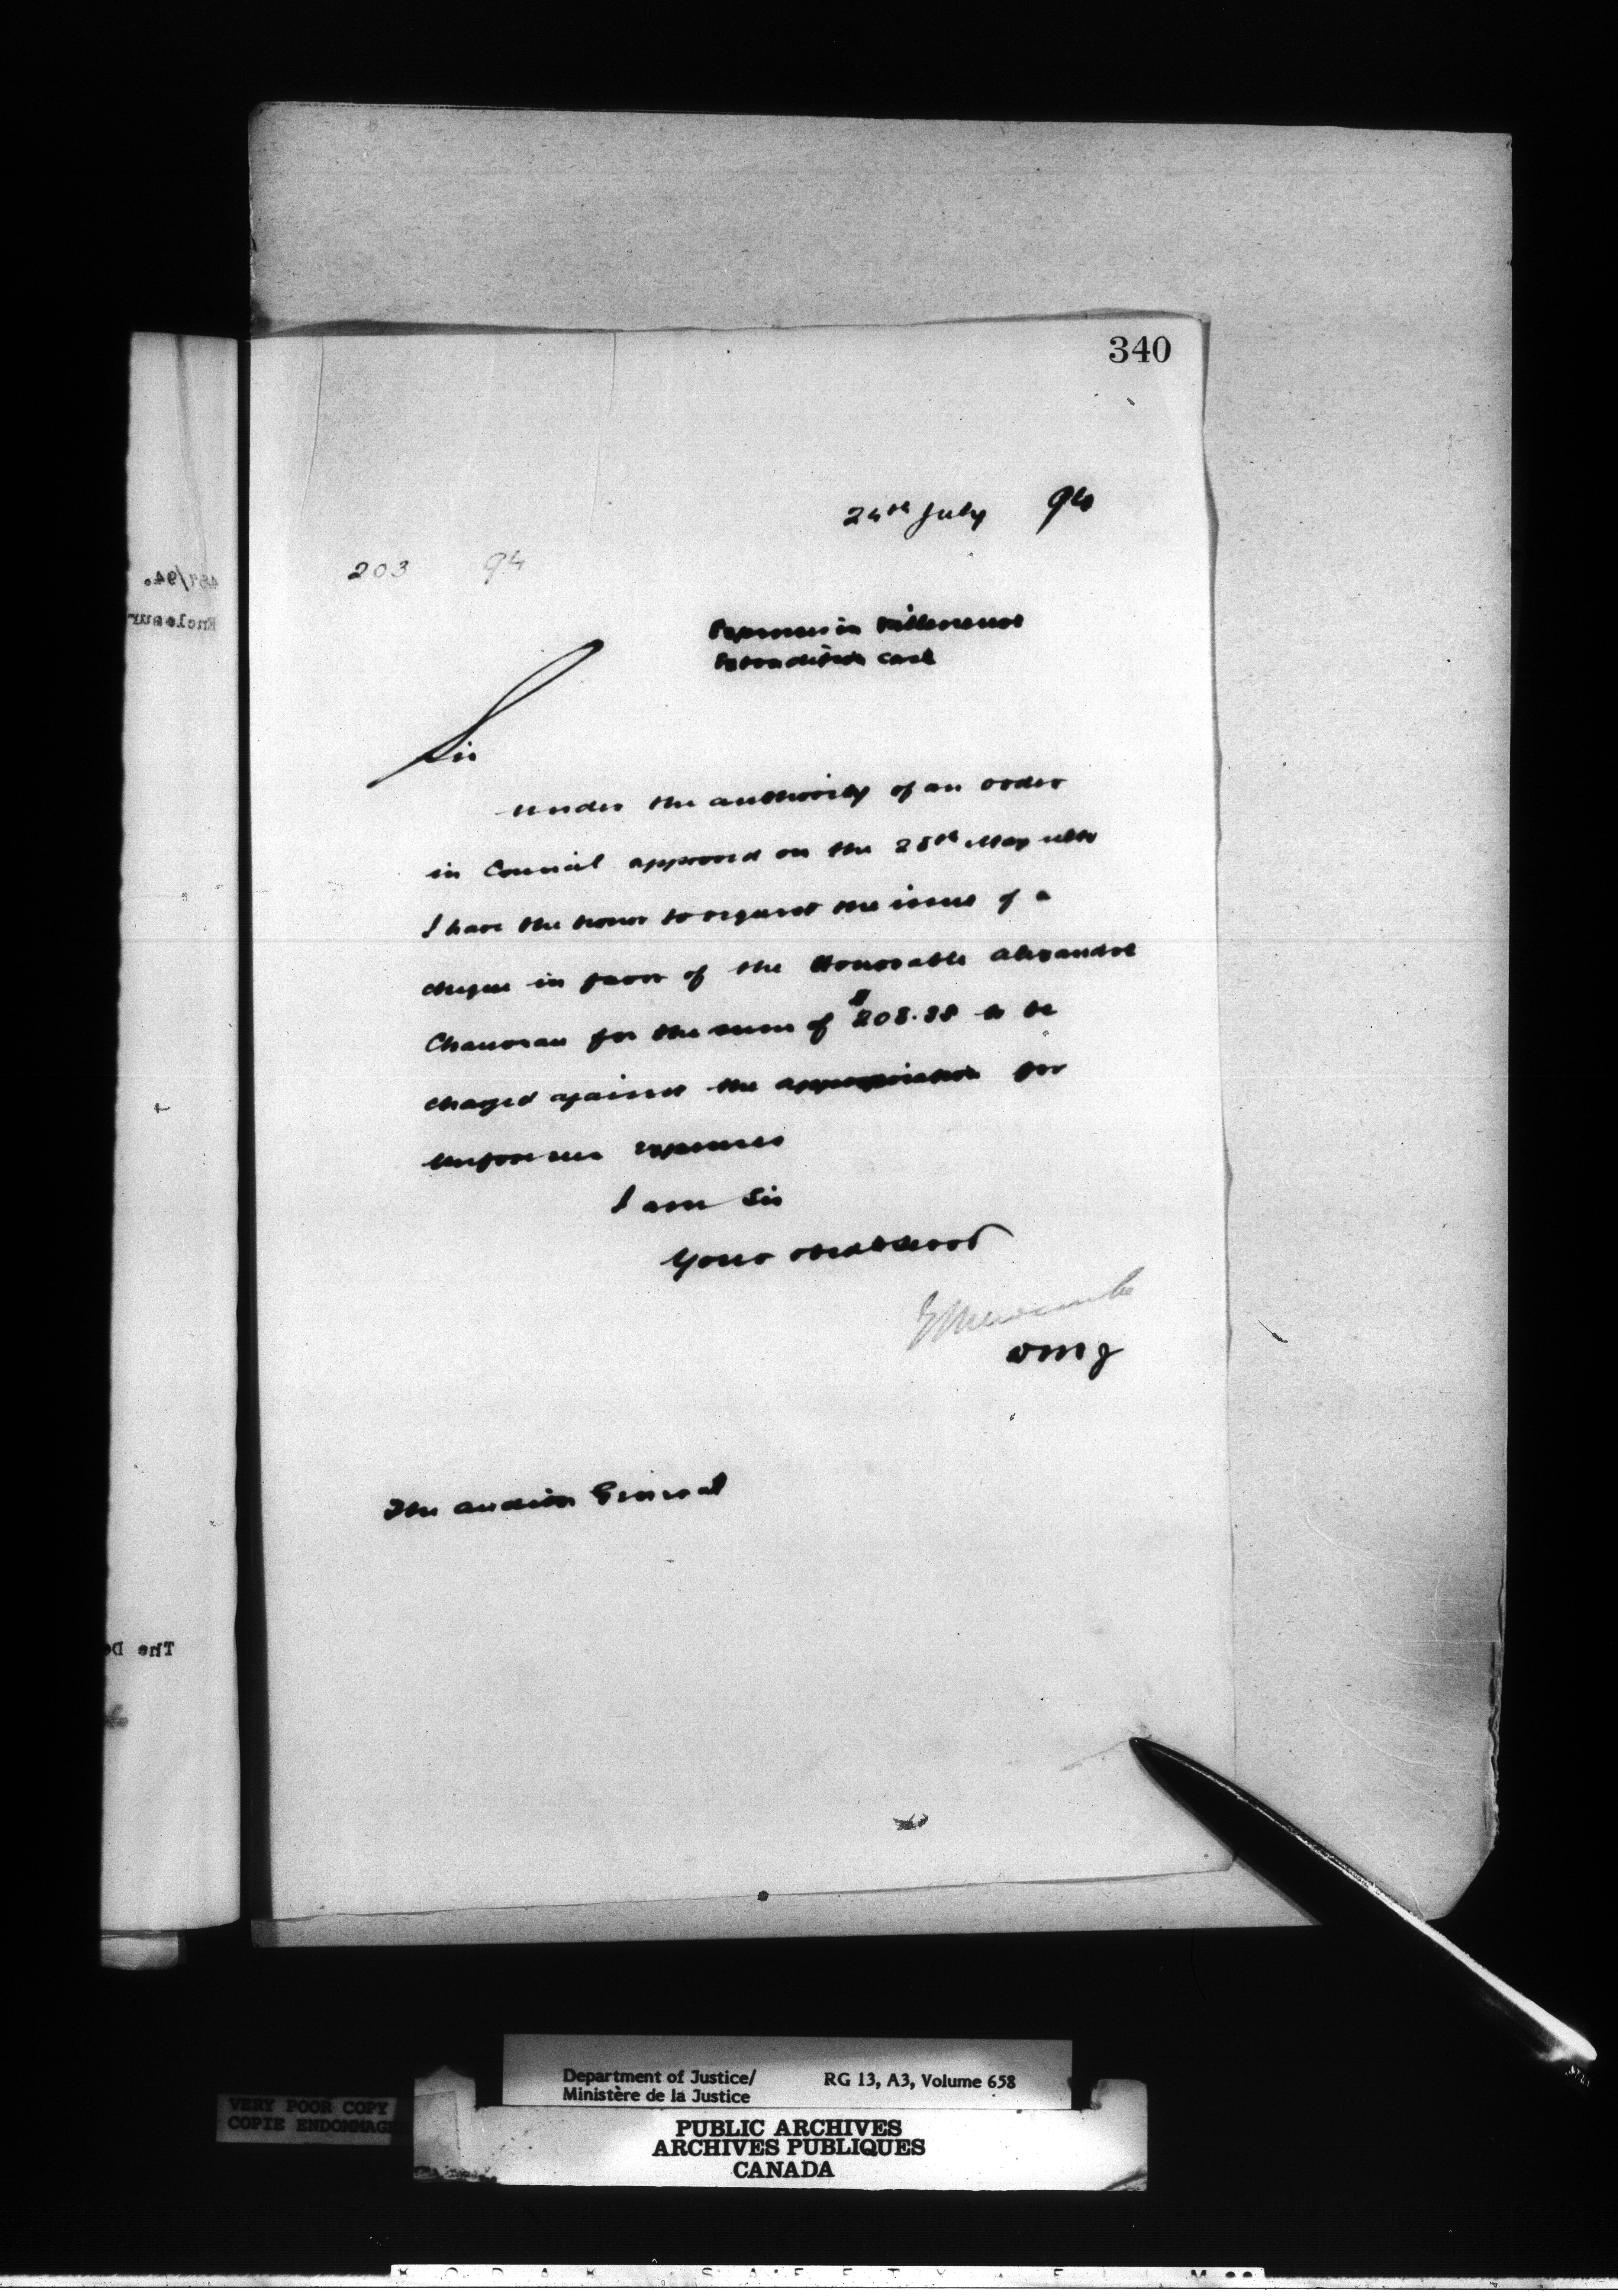 340
24th July 94
203 94
Expenses in Villeneuve
Extradition case
Sir
Under the authority of an order
in Council approved on the 28th May ulto
I have the honor to request the issue of a
cheque in favor of the Honorable Alexandre
Chauveau for the sum of $208.88 to be
charged against the appropriation for
unforeseen expenses
I am Sir
Your obedt servt
E L Newcombe
DMJ
The Auditor General
487/94.
Enclosur
The De
Department of Justice/
Ministère de la Justice
RG 13, A3, Volume 658
VERY POOR COPY
COPIE ENDOMMAG
PUBLIC ARCHIVES
ARCHIVES PUBLIQUES
CANADA